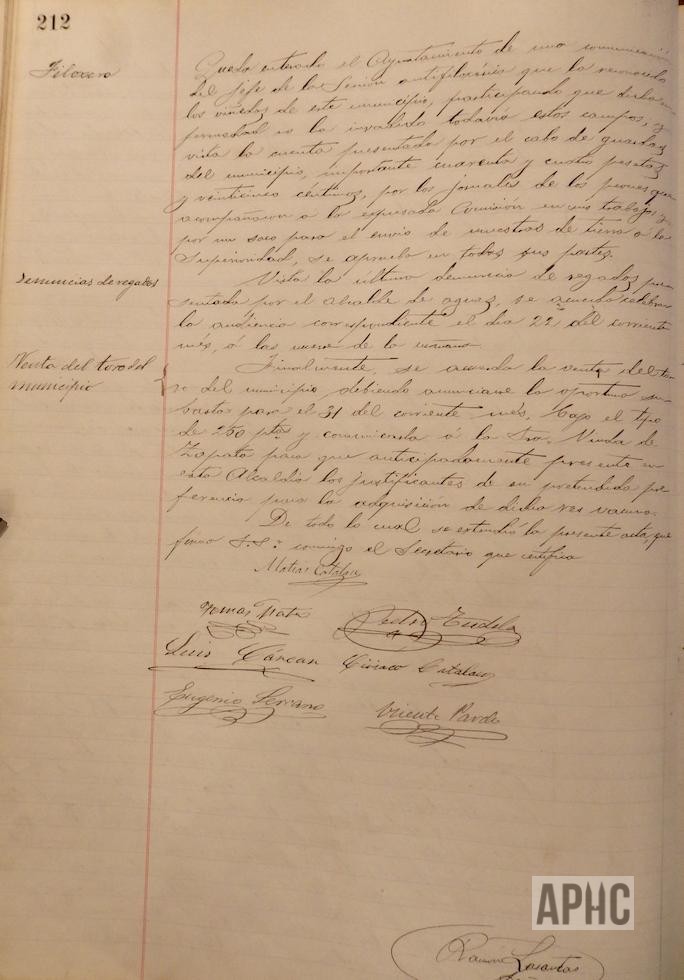 212
Filoxera
Queda enterado el Ayuntamiento de una comunicación
del Jefe de la Sección antifiloxérica que ha reconocido
los viñedos de este municipio, participando que dicha en
fermedad no ha invadido todavía estos campos, y
vista la cuenta presentada por el cabo de guardas
del municipio, importante cuarenta y cuatro pesetas
y veinticinco céntimos, por los jornales de los peones que
acompañaron a la expresada Comisión en sus trabajos y
por un saco para el envio de muestras de tierra a la
Superioridad, se aprueba en todas sus partes.
Denuncias de regados
Vista la última denuncia de regados pre
sentada por el alcalde de aguas, se acuerda celebrar
la audiencia correspondiente el dia 22 del corriente
mes, á las nueve de la mañana.
Venta del toro del
municipio
Finalmente, se acuerda la venta del to
ro del municipio debiendo anunciarse la oportuna su
basta para el 31 del corriente mes, bajo el tipo
de 250 ptas y comunicarla á la Sra. Viuda de
Zapata para que anticipadamente presente en
esta Alcaldía los justificantes de su pretendida pre
ferencia para la adquisición de dicha res vacuna.
De todo lo cual se extendió la presente acta, que
firma S.S.ª conmigo el Secretario que certifica
Matías Catalan
Tomás Pedro Tudela
Luis Cárcar Ciriaco Catalan
Eugenio Serrano Vicente Pardo
Ramón Lasantas
APHC